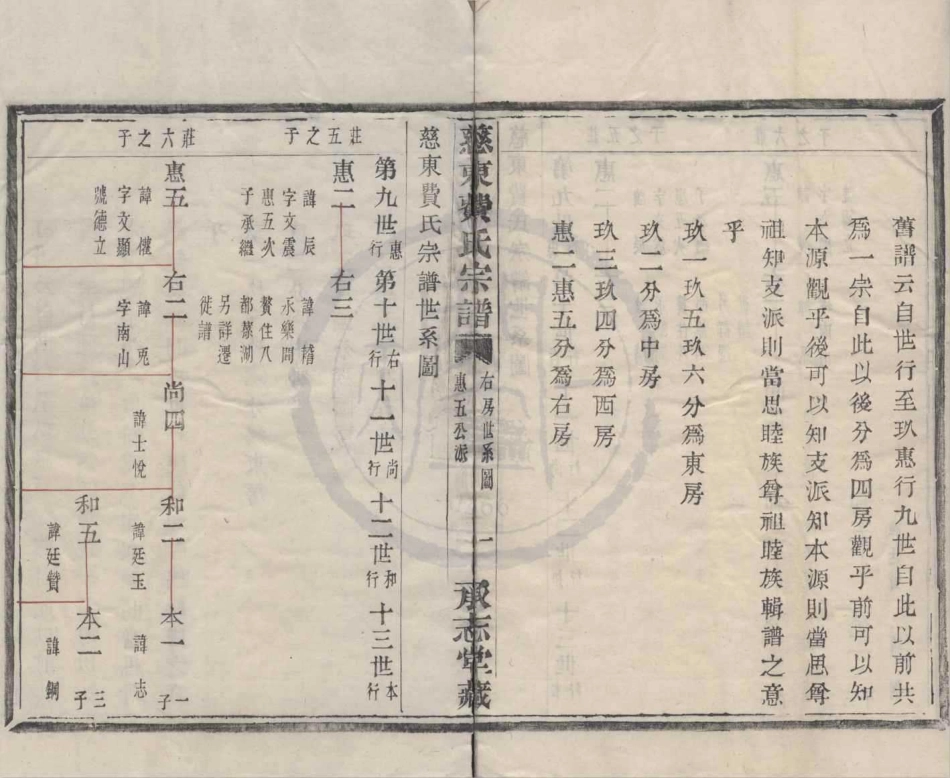 舊譜云自世行至玖惠行九世自此以前共
爲一宗自此以後分爲四房觀乎前可以知
本源觀乎後可以知支派知本源則當思尊
祖知支派則當思睦族尊祖睦族輯譜之意
乎
玖一玖五玖六分爲東房
玖二分爲中房
玖三玖四分爲西房
惠二惠五分爲右房
慈東費氏宗譜
右房世系圖
惠五公派
一
承志堂藏
慈東費氏宗譜世系圖
第九世惠行
第十世右行
十一世尚行
十二世和行
十三世本行
莊五之子
惠二
諱辰
字文震
惠五次
子承繼
右三
諱稽
永樂間
贅住八
都蔡湖
另詳遷
徙譜
莊六之子
惠五
諱
字文顯
號德立
右二
諱
字南山
尚四
諱士悅
和二
諱廷玉
本一
諱志
一子
和五
諱廷贊
本二
諱鋼
三子